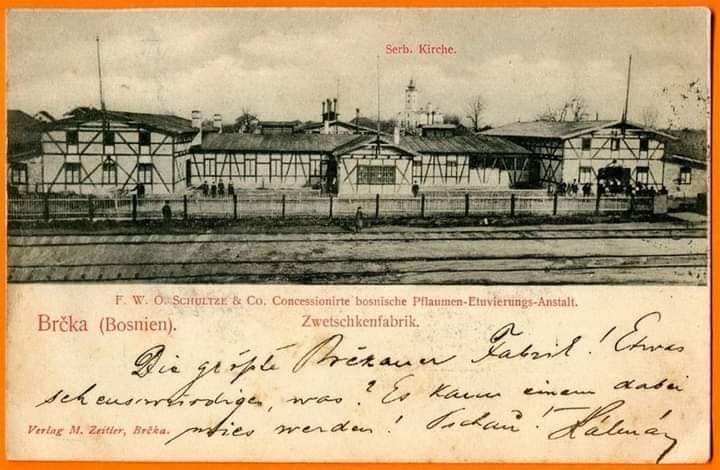 Serb. Kirche.
F. W. O. SCHULTZE & Co. Concessionirte bosnische Pflaumen-Etuvierungs-Anstalt.
Brčka (Bosnien). Zwetschkenfabrik.
Die größte Brčkauer Fabrik! Etwas
sehenswürdiges, was? Es kann einem dabei
mies werden! Tschau! Kálmán
Verlag M. Zeitler, Brčka.